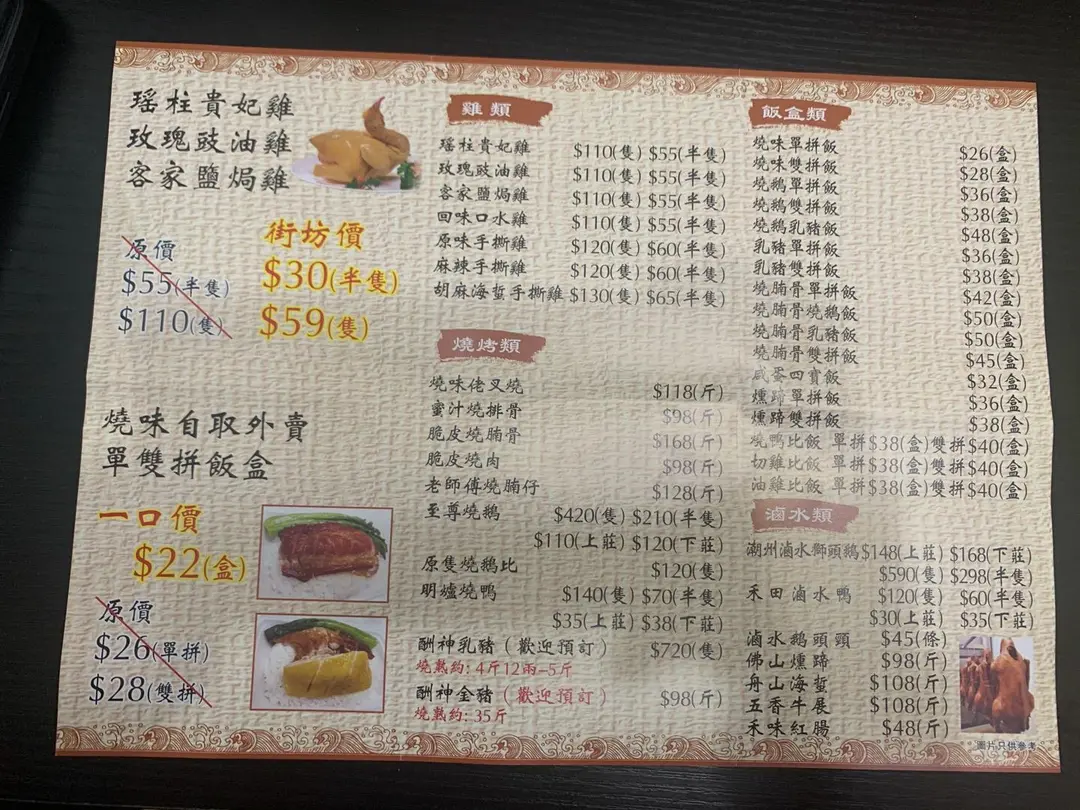 瑤柱貴妃雞
玫瑰豉油雞
客家鹽焗雞
街坊價
原價
$30(半隻)
$55(半隻)
$59(隻)
$110(隻)
燒味自取外賣
單雙拼飯盒
一口價
$22(盒)
原價
$26(單拼)
$28(雙拼)
雞類
瑤柱貴妃雞 $110(隻) $55(半隻)
玫瑰豉油雞 $110(隻) $55(半隻)
客家鹽焗雞 $110(隻) $55(半隻)
回味口水雞 $110(隻) $55(半隻)
原味手撕雞 $120(隻) $60(半隻)
麻辣手撕雞 $120(隻) $60(半隻)
胡麻海蜇手撕雞 $130(隻) $65(半隻)
燒烤類
燒味佬叉燒 $118(斤)
蜜汁燒排骨 $98(斤)
脆皮燒腩骨 $168(斤)
脆皮燒肉 $98(斤)
老師傅燒腩仔 $128(斤)
至尊燒鵝 $420(隻) $210(半隻)
$110(上莊) $120(下莊)
原隻燒鵝比 $120(隻)
明爐燒鴨 $140(隻) $70(半隻)
$35(上莊) $38(下莊)
酬神乳豬(歡迎預訂) $720(隻)
燒熟約: 4斤12兩-5斤
酬神金豬(歡迎預訂) $98(斤)
燒熟約: 35斤
飯盒類
燒味單拼飯 $26(盒)
燒味雙拼飯 $28(盒)
燒鵝單拼飯 $36(盒)
燒鵝雙拼飯 $38(盒)
燒鵝乳豬飯 $48(盒)
乳豬單拼飯 $36(盒)
乳豬雙拼飯 $38(盒)
燒腩骨單拼飯 $42(盒)
燒腩骨燒鵝飯 $50(盒)
燒腩骨乳豬飯 $50(盒)
燒腩骨雙拼飯 $45(盒)
咸蛋四寶飯 $32(盒)
燻蹄單拼飯 $36(盒)
燻蹄雙拼飯 $38(盒)
燒鴨比飯 單拼$38(盒)雙拼$40(盒)
切雞比飯 單拼$38(盒)雙拼$40(盒)
油雞比飯 單拼$38(盒)雙拼$40(盒)
滷水類
潮州滷水獅頭鵝$148(上莊) $168(下莊)
$590(隻) $298(半隻)
禾田滷水鴨 $120(隻) $60(半隻)
$30(上莊) $35(下莊)
滷水鵝頭頸 $45(條)
佛山燻蹄 $98(斤)
舟山海蜇 $108(斤)
五香牛展 $108(斤)
禾味紅腸 $48(斤)
圖片只供參考